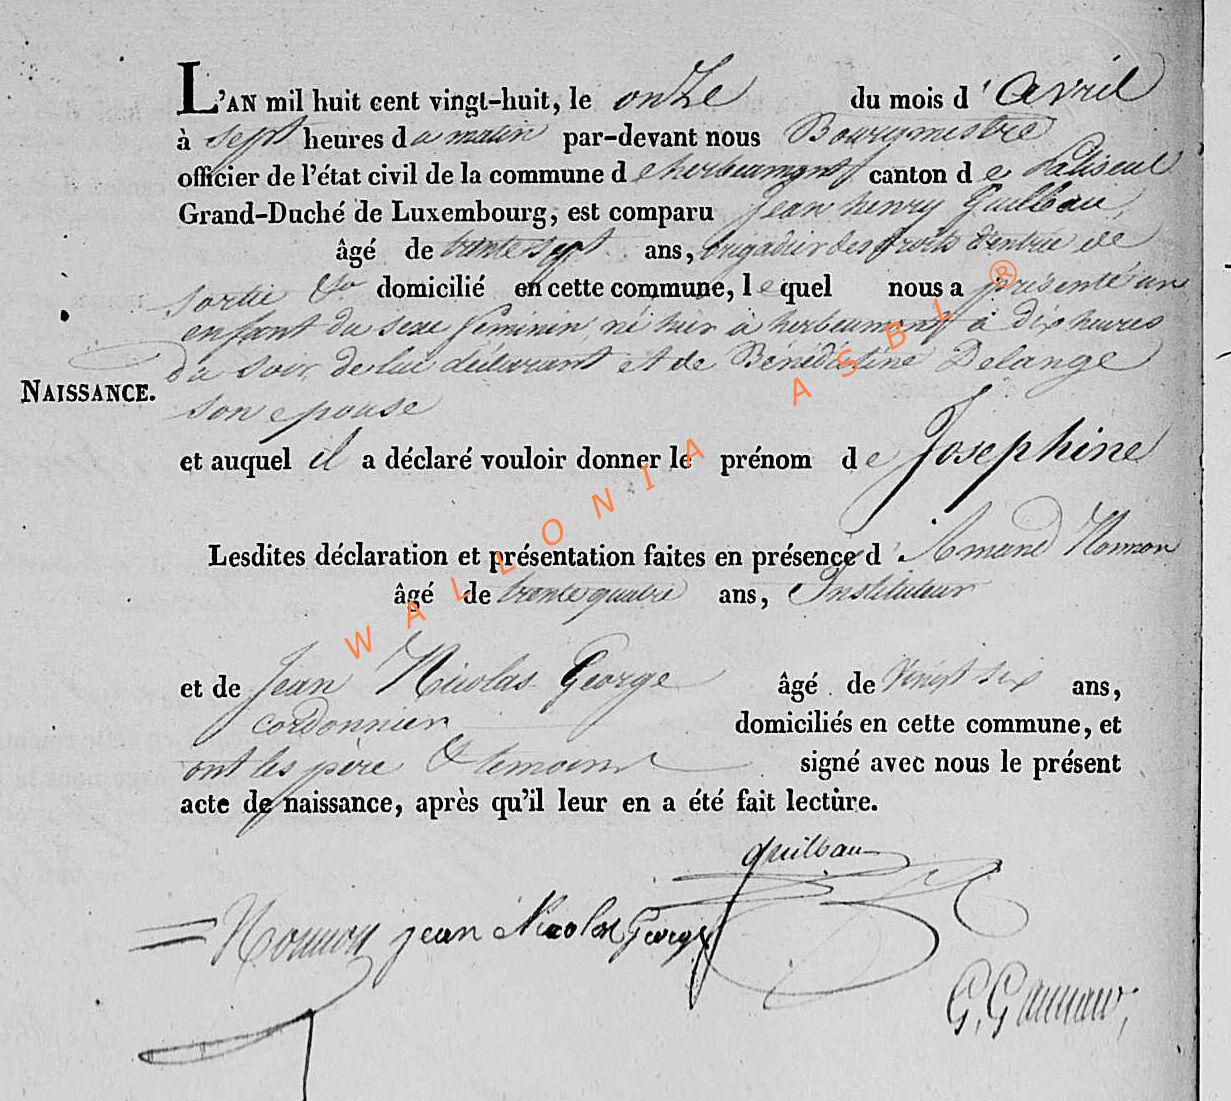 L'AN mil huit cent vingt-huit, le onze du mois d'Avril
à sept heures du matin par-devant nous Bourgmestre
officier de l'état civil de la commune d'herbeumont canton de Paliseul
Grand-Duché de Luxembourg, est comparu Jean henry Guilbau,
âgé de trente sept ans, brigadier des droits d'entrée et de
sortie &a domicilié en cette commune, lequel nous a présenté un
enfant du sexe féminin né hier à herbeumont à dix heures
Du soir, de lui déclarant et de Bénédictine Delange
NAISSANCE.
son epouse
et auquel il a déclaré vouloir donner le prénom de Josephine
Lesdites déclaration et présentation faites en présence d'Amand Nonnon
âgé de trente quatre ans, Instituteur
et de Jean Nicolas George âgé de vingt six ans,
cordonnier domiciliés en cette commune, et
ont les père & temoins signé avec nous le présent
acte de naissance, après qu'il leur en a été fait lecture.
guilbau
Nonnon jean Nicolas George
WALLONIA ASBL ®